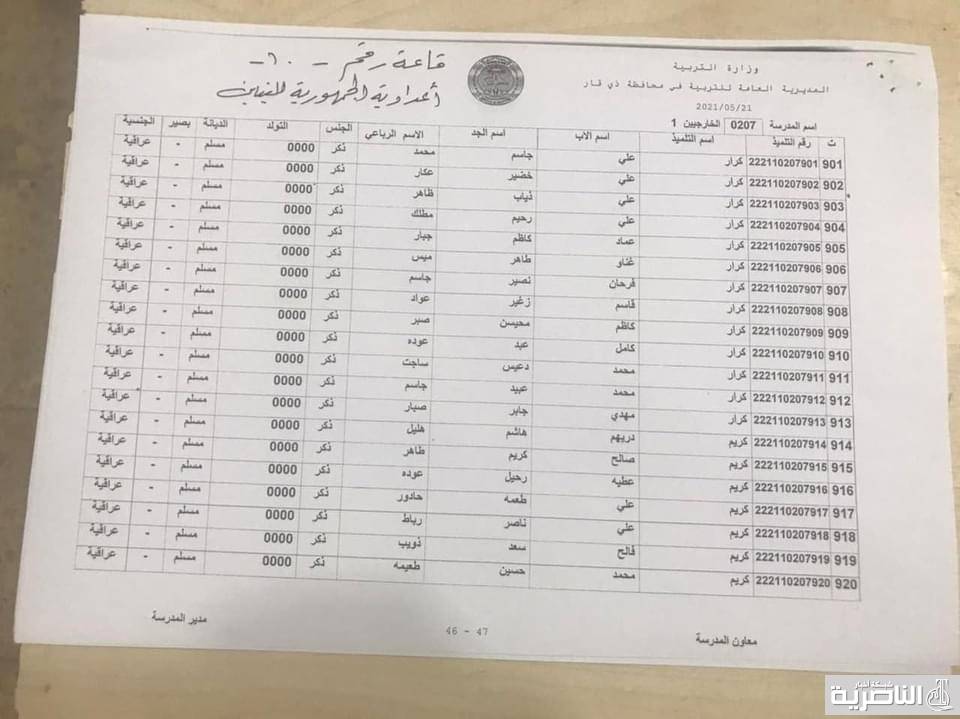 وزارة التربية
المديرية العامة للتربية في محافظة ذي قار
2021/05/21
قاعة رقم - ٦٠ -
أعدادية الجمهورية للبنين
اسم المدرسة 0207 الخارجيين 1
ت رقم التلميذ اسم التلميذ اسم الاب اسم الجد الاسم الرباعي الجنس التولد الديانة بصير الجنسية
901 222110207901 كرار علي جاسم محمد ذكر 0000 مسلم - عراقية
902 222110207902 كرار علي خضير عكار ذكر 0000 مسلم - عراقية
903 222110207903 كرار علي ذياب ظاهر ذكر 0000 مسلم - عراقية
904 222110207904 كرار علي رحيم مطلك ذكر 0000 مسلم - عراقية
905 222110207905 كرار عماد كاظم جبار ذكر 0000 مسلم - عراقية
906 222110207906 كرار غناو طاهر ميس ذكر 0000 مسلم - عراقية
907 222110207907 كرار فرحان نصير جاسم ذكر 0000 مسلم - عراقية
908 222110207908 كرار قاسم زغير عواد ذكر 0000 مسلم - عراقية
909 222110207909 كرار كاظم محيسن صبر ذكر 0000 مسلم - عراقية
910 222110207910 كرار كامل عبد عوده ذكر 0000 مسلم - عراقية
911 222110207911 كرار محمد دعيس ساجت ذكر 0000 مسلم - عراقية
912 222110207912 كرار محمد عبيد جاسم ذكر 0000 مسلم - عراقية
913 222110207913 كرار مهدي جابر صبار ذكر 0000 مسلم - عراقية
914 222110207914 كريم دريهم هاشم هليل ذكر 0000 مسلم - عراقية
915 222110207915 كريم صالح كريم طاهر ذكر 0000 مسلم - عراقية
916 222110207916 كريم عطيه رحيل عوده ذكر 0000 مسلم - عراقية
917 222110207917 كريم علي طعمه حادور ذكر 0000 مسلم - عراقية
918 222110207918 كريم علي ناصر رباط ذكر 0000 مسلم - عراقية
919 222110207919 كريم فالح سعد ذويب ذكر 0000 مسلم - عراقية
920 222110207920 كريم محمد حسين طعيمه ذكر 0000 مسلم - عراقية
معاون المدرسة
46 - 47
مدير المدرسة
شبكة أخبار
الناصرية